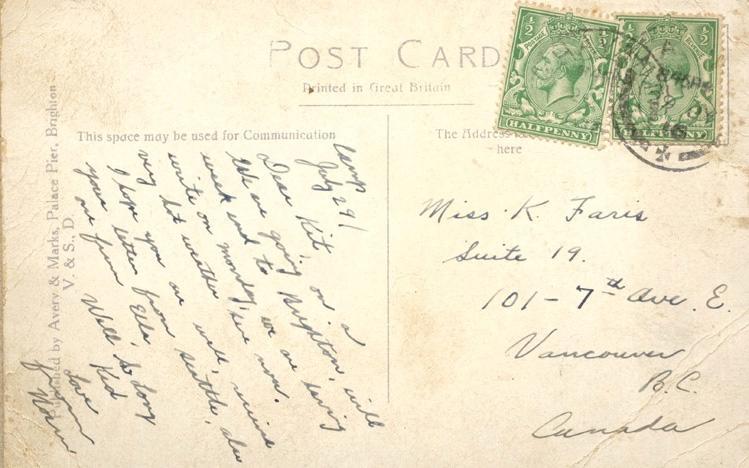 POST CARD
Printed in Great Britain
This space may be used for Communication
The Address
here
½ ½
HALFPENNY
½ ½
HALFPENNY
Published by Avery & Marks, Palace Pier, Brighton
V. & S., D.
Camp
July 29/
Dear Kit,
We are going on a
week end to Brighton, will
write on monday, we are having
very hot weather here now.
I hope you are well, received
your letter from Seattle, also
one from Ella.
Well, So Long
Kid
Love
from
Norm
Miss K. Faris
Suite 19.
101 - 7th Ave. E.
Vancouver
B.C.
Canada